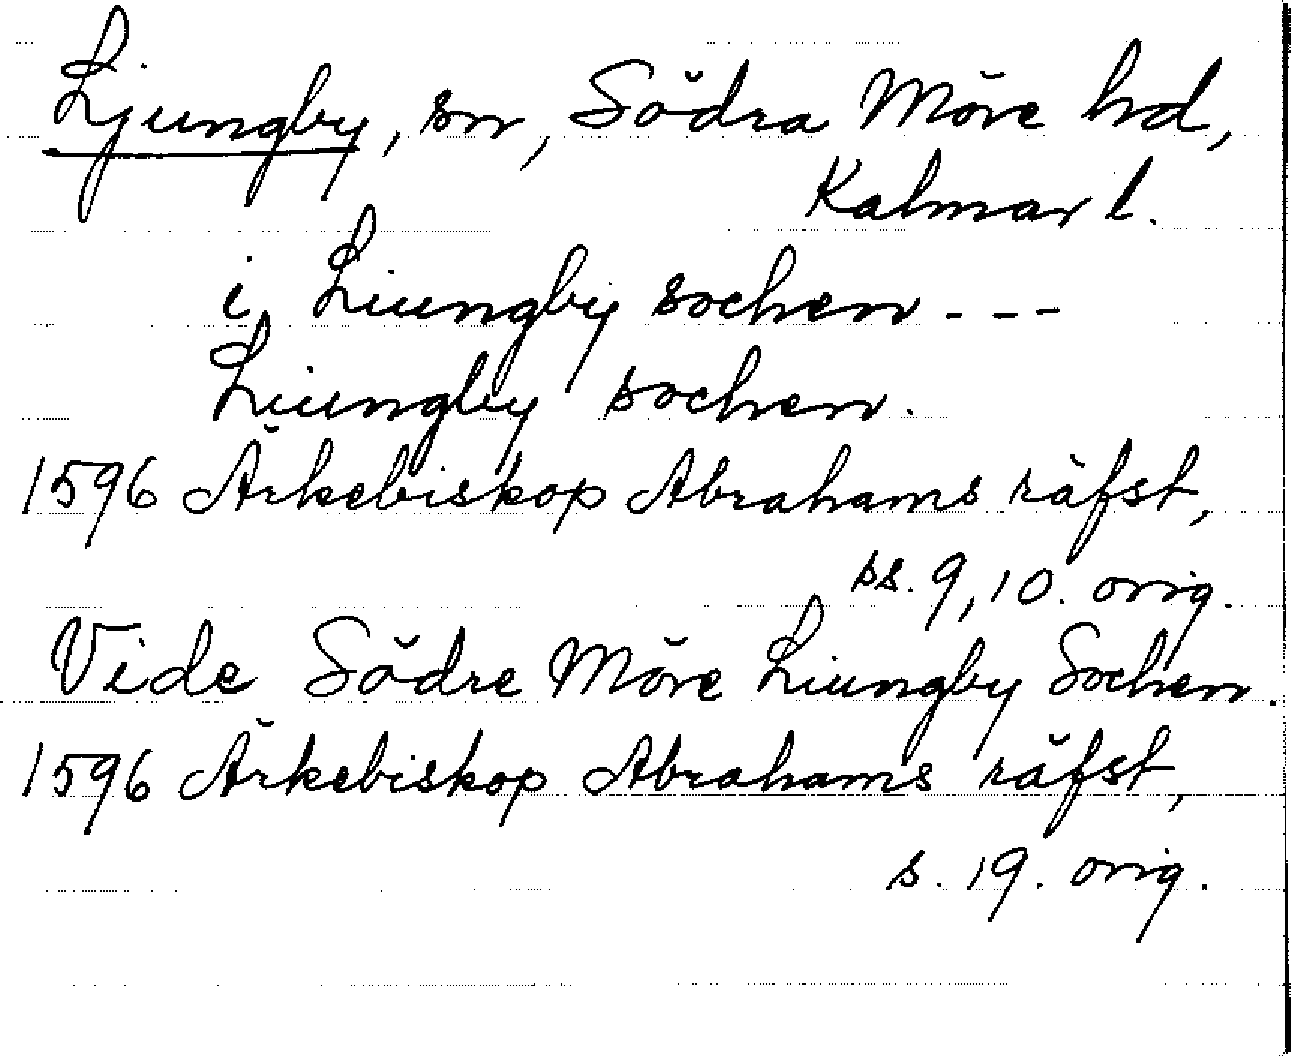 Ljungby, sn, Södra Möre hd,
Kalmar l.
i Liungby sochen - - -
Liungby sochen.
1596 Ärkebiskop Abrahams räfst,
ss. 9, 10. orig.
Vide Södre Möre Liungby Sochen.
1596 Ärkebiskop Abrahams räfst,
s. 19. orig.